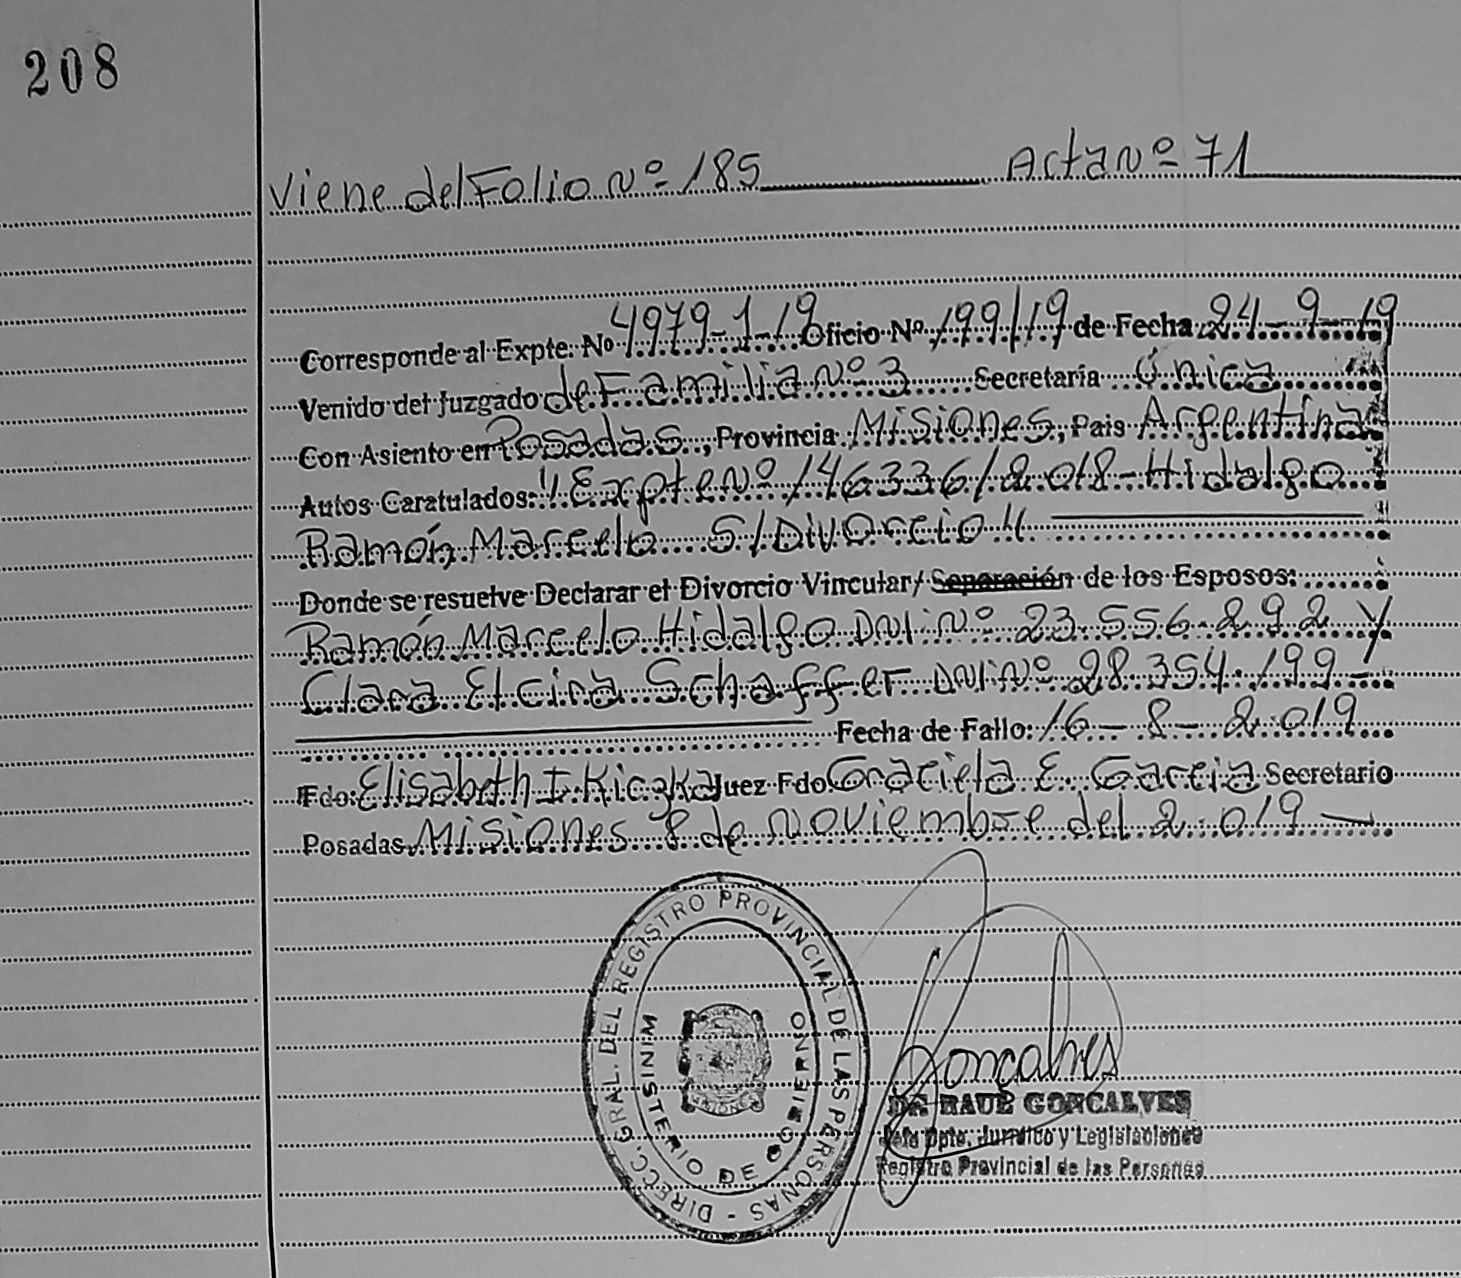 208
Viene del Folio Nº 185 Acta Nº 71
Corresponde al Expte: Nº 4979-1-19 Oficio Nº 199/19 de Fecha 24-9-19
Venido del Juzgado de Familia Nº 3 Secretaría Única
Con Asiento en Posadas, Provincia Misiones, Pais Argentina
Autos Caratulados: "Expte Nº 146336/2018-Hidalgo
Ramón Marcelo S/Divorcio"
Donde se resuelve Declarar el Divorcio Vincular/ Separación de los Esposos:
Ramón Marcelo Hidalgo DNI Nº 23.556.292 y
Clara Elcira Schaffer DNI Nº 28.354.199-
Fecha de Fallo: 16-8-2.019
Fdo: Elisabeth I. Kiczka Juez Fdo Graciela E. Garcia Secretario
Posadas Misiones 8 de Noviembre del 2.019-
DIRECC. GRAL. DEL REGISTRO PROVINCIAL DE LAS PERSONAS -
MINISTERIO DE GOBIERNO
MISIONES
Goncalves
DR. RAUL GONCALVES
Jefe Dpto. Jurídico y Legislaciones
Registro Provincial de las Personas